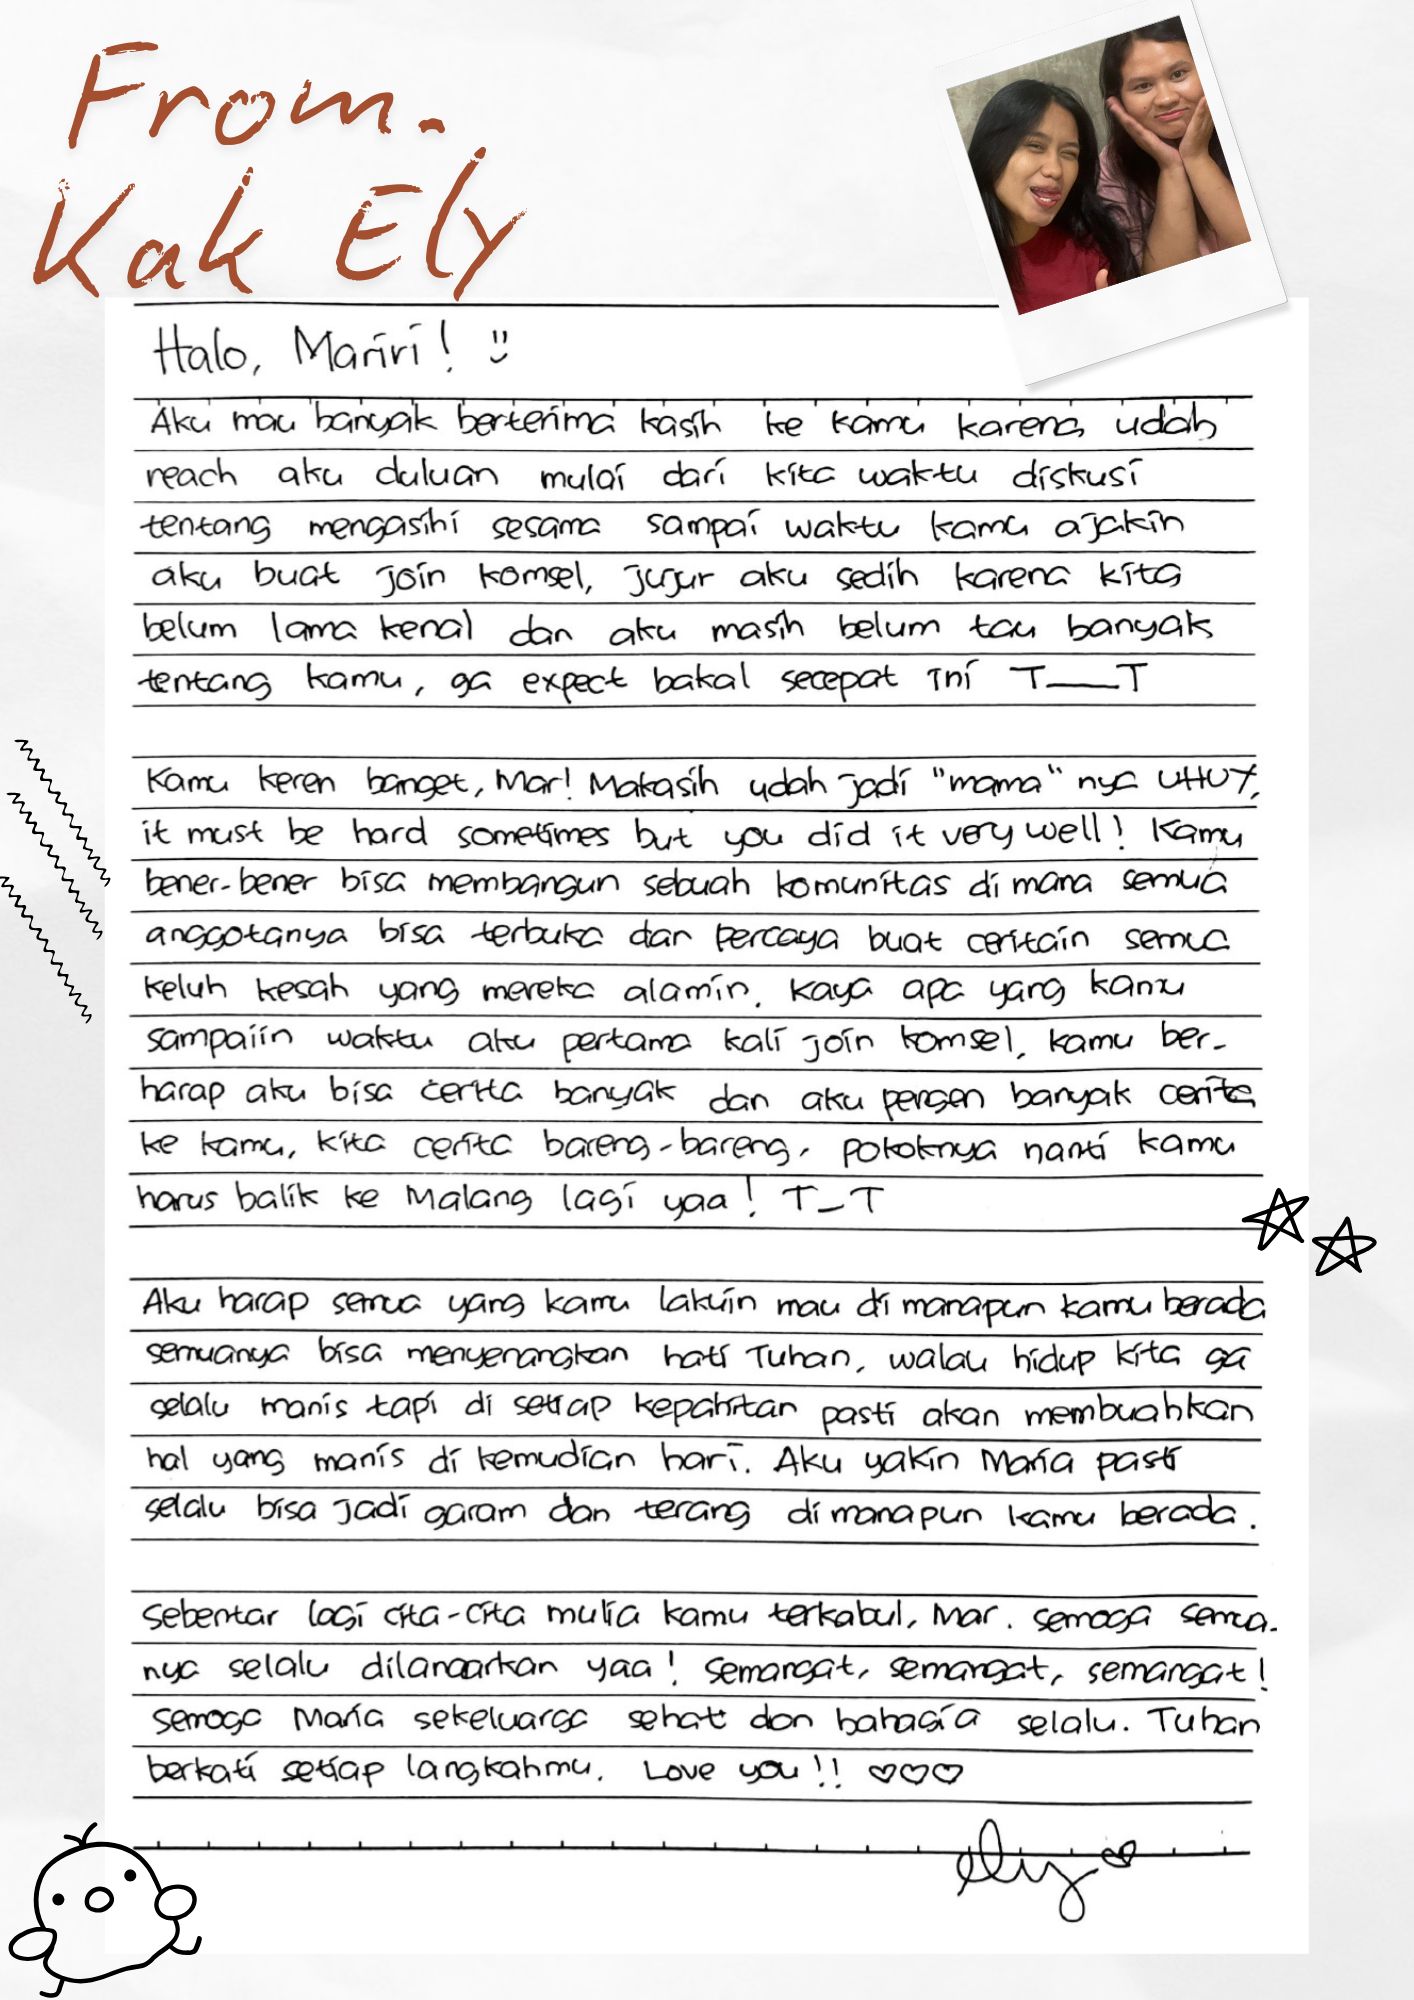 From.
Kak Ely
Halo, Mariri! :)
Aku mau banyak berterima kasih ke kamu karena udah
reach aku duluan mulai dari kita waktu diskusi
tentang mengasihi sesama sampai waktu kamu ajakin
aku buat join komsel, jujur aku sedih karena kita
belum lama kenal dan aku masih belum tau banyak
tentang kamu, ga expect bakal secepat ini T___T
Kamu keren banget, Mar! Makasih udah jadi "mama" nya UHUY,
it must be hard sometimes but you did it very well! Kamu
bener-bener bisa membangun sebuah komunitas di mana semua
anggotanya bisa terbuka dan percaya buat ceritain semua
keluh kesah yang mereka alamin. Kaya apa yang kamu
sampaiin waktu aku pertama kali join komsel, kamu ber-
harap aku bisa cerita banyak dan aku pengen banyak cerita
ke kamu, kita cerita bareng-bareng. Pokoknya nanti kamu
harus balik ke Malang lagi yaa! T_T
Aku harap semua yang kamu lakuin mau di manapun kamu berada
semuanya bisa menyenangkan hati Tuhan, walau hidup kita ga
selalu manis tapi di setiap kepahitan pasti akan membuahkan
hal yang manis di kemudian hari. Aku yakin Maria pasti
selalu bisa jadi garam dan terang di manapun kamu berada.
Sebentar lagi cita-cita mulia kamu terkabul, Mar. Semoga semua-
nya selalu dilancarkan yaa! Semangat, semangat, semangat!
Semoga Maria sekeluarga sehat dan bahagia selalu. Tuhan
berkati setiap langkahmu. Love you!! ♡♡♡
ely♡